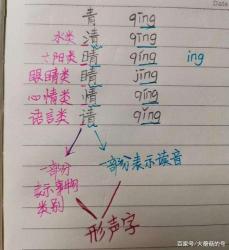 Date
青 qīng
水类 清 qīng
太阳类 晴 qíng ing
眼睛类 睛 jīng
心情类 情 qíng
语言类 请 qǐng
一部分
表示事物
类别
一部分表示读音
形声字
百家号/火蘑菇的号